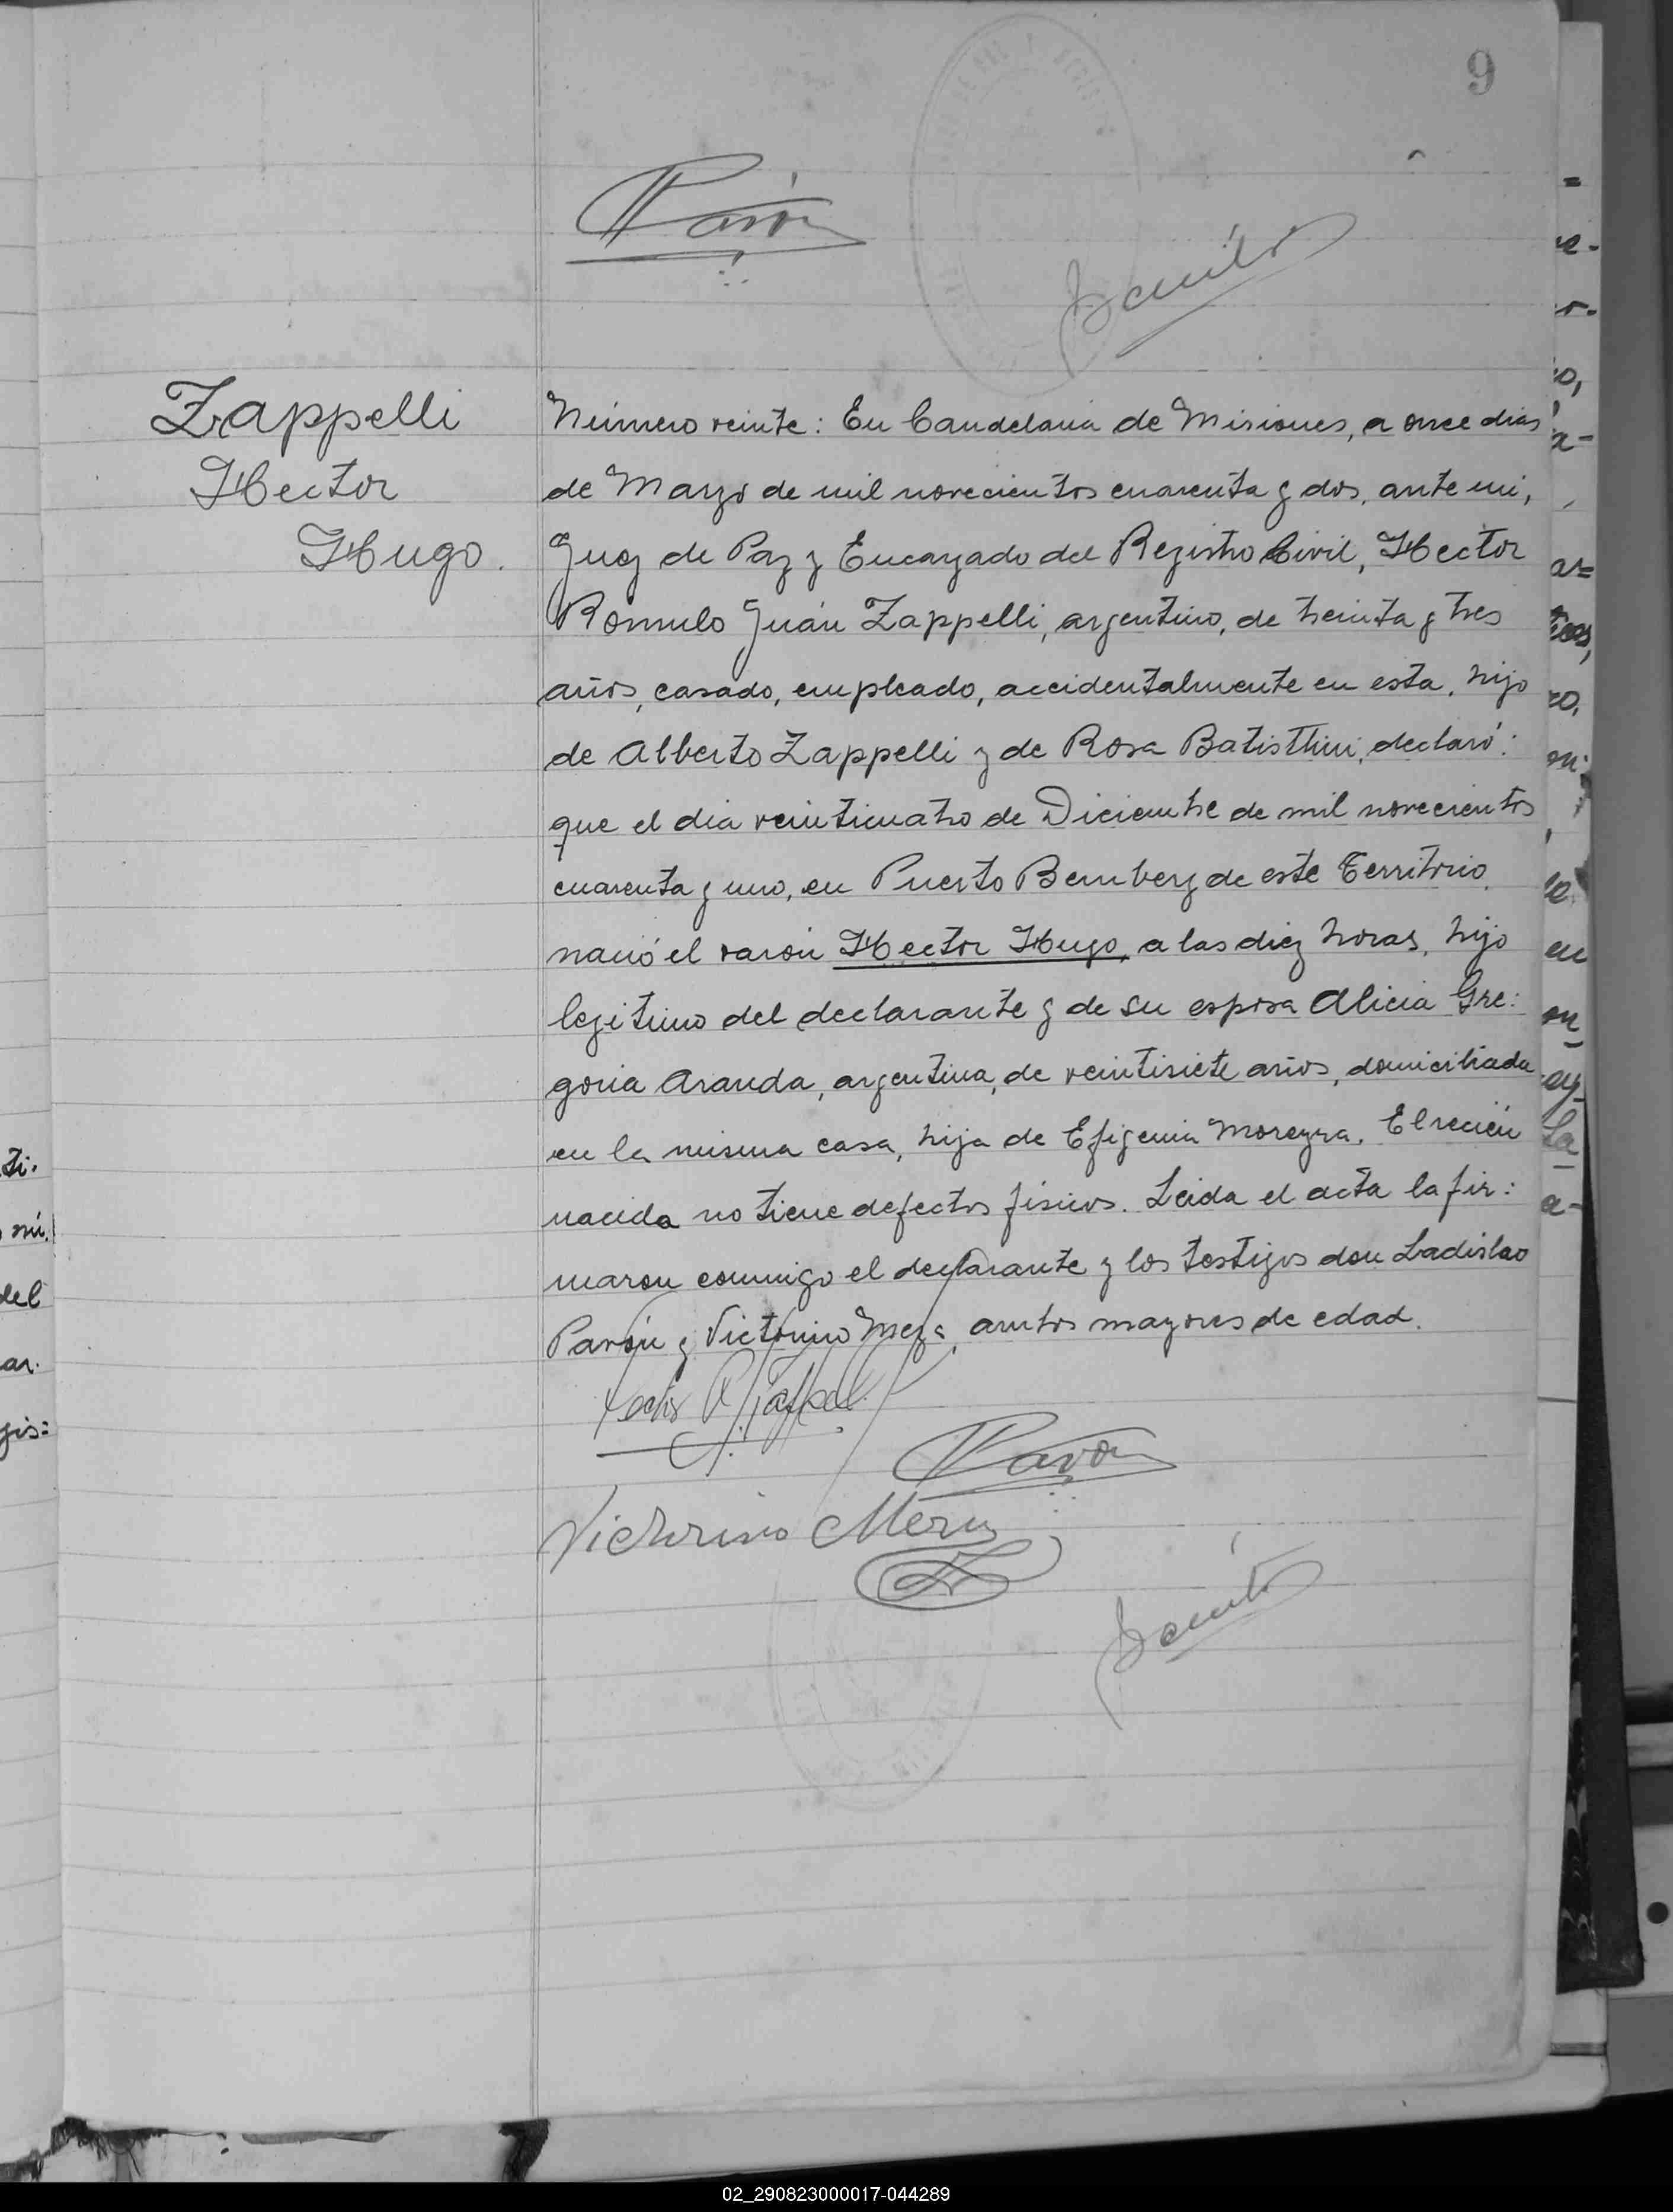 9
Pavón
Zappelli
Hector
Hugo.
Número veinte: En Candelaria de Misiones, a once dias
de Marzo de mil novecientos cuarenta y dos, ante mi,
Juez de Paz y Encargado del Registro Civil, Hector
Romulo Juán Zappelli, argentino, de treinta y tres
años, casado, empleado, accidentalmente en esta, hijo
de Alberto Zappelli y de Rosa Batisttini, declaró:
que el dia veinticuatro de Diciembre de mil novecientos
cuarenta y uno, en Puerto Bemberg de este Territorio,
nació el varón Hector Hugo, a las diez horas, hijo
legitimo del declarante y de su esposa Alicia Gre:
goria Aranda, argentina, de veintisiete años, domiciliada
en la misma casa, hija de Efigenia Moreyra. El recién
nacido no tiene defectos fisicos. Leida el acta la fir:
maron conmigo el declarante y los testigos don Ladislao
Pavón y Victorino Meza, ambos mayores de edad.
Pavón
Victorino Meza
ti.
mi.
del
ar.
gis:
02_290823000017-044289